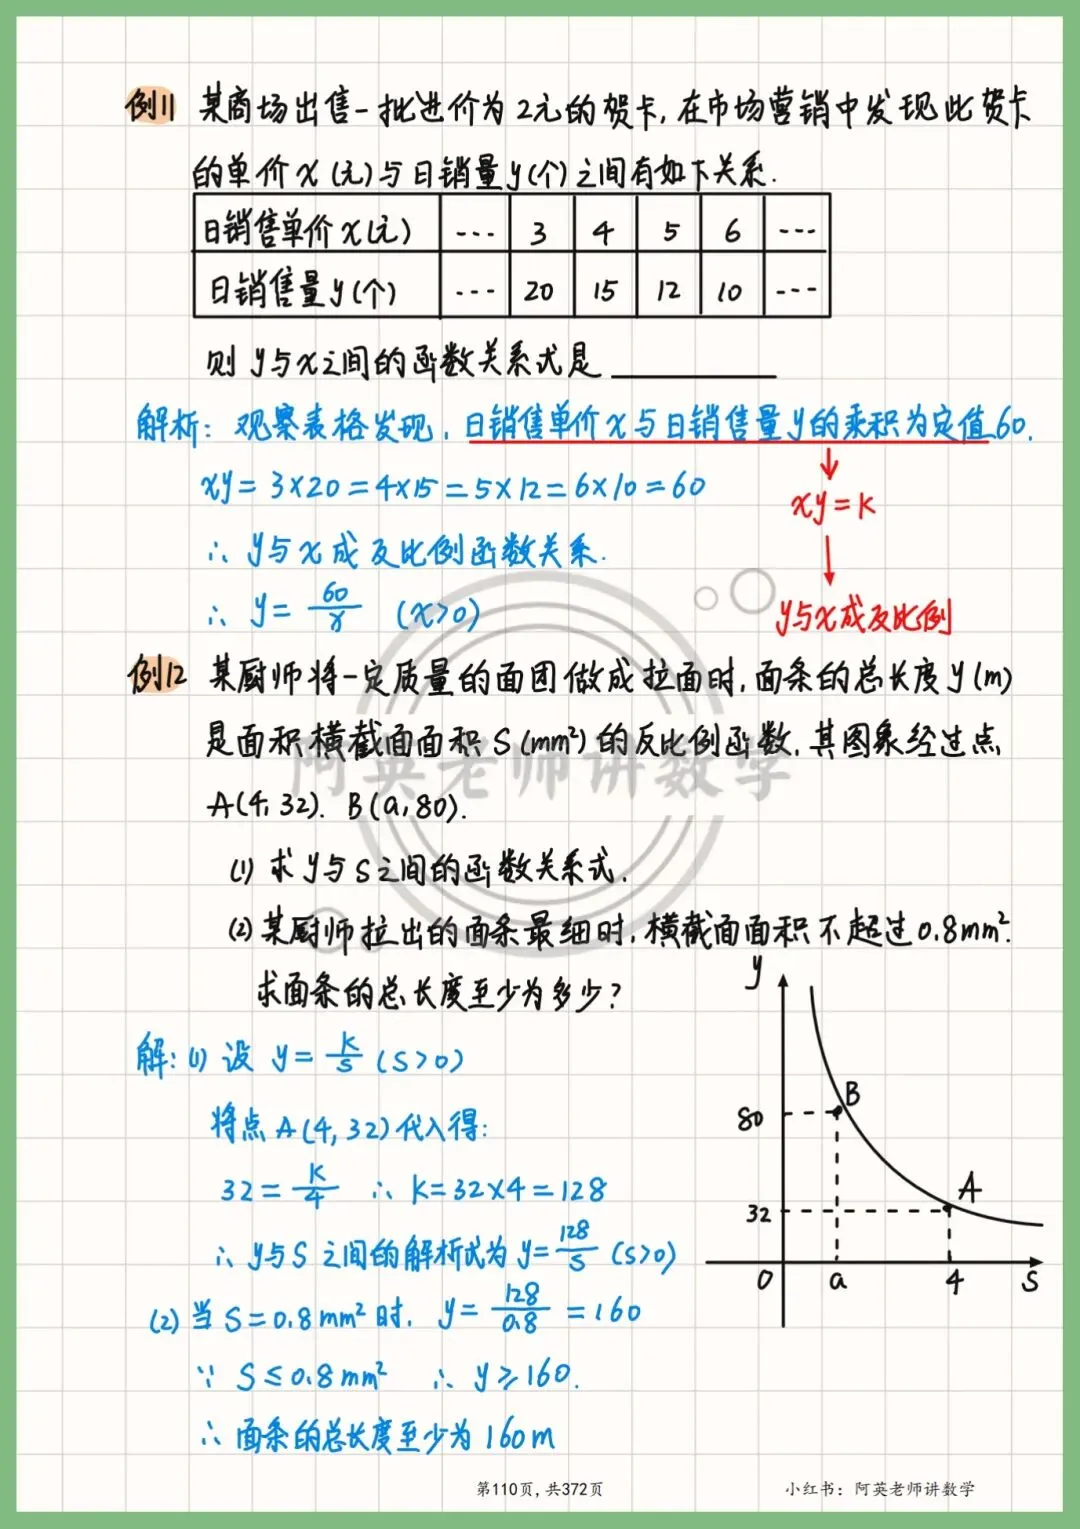 例11 某商场出售一批进价为2元的贺卡,在市场营销中发现此贺卡
的单价x(元)与日销量y(个)之间有如下关系.
日销售单价x(元) --- 3 4 5 6 ---
日销售量y(个) --- 20 15 12 10 ---
则y与x之间的函数关系式是______
解析: 观察表格发现,日销售单价x与日销售量y的乘积为定值60.
xy=3×20=4×15=5×12=6×10=60
xy=k
∴ y与x成反比例函数关系.
∴ y=60/x (x>0)
y与x成反比例
例12 某厨师将一定质量的面团做成拉面时,面条的总长度y(m)
是面积横截面面积S(mm²)的反比例函数,其图象经过点
A(4,32). B(a,80).
(1) 求y与S之间的函数关系式.
(2) 某厨师拉出的面条最细时,横截面面积不超过0.8mm².
求面条的总长度至少为多少?
解:(1) 设 y=k/s (S>0)
将点A(4,32)代入得:
32=k/4 ∴ k=32×4=128
∴ y与S之间的解析式为y=128/s (S>0)
(2) 当S=0.8mm²时, y=128/0.8=160
∵ S≤0.8mm² ∴ y≥160.
∴ 面条的总长度至少为160m
y
B
80
A
32
0 a 4 S
阿英老师讲数学
第110页,共372页
小红书:阿英老师讲数学